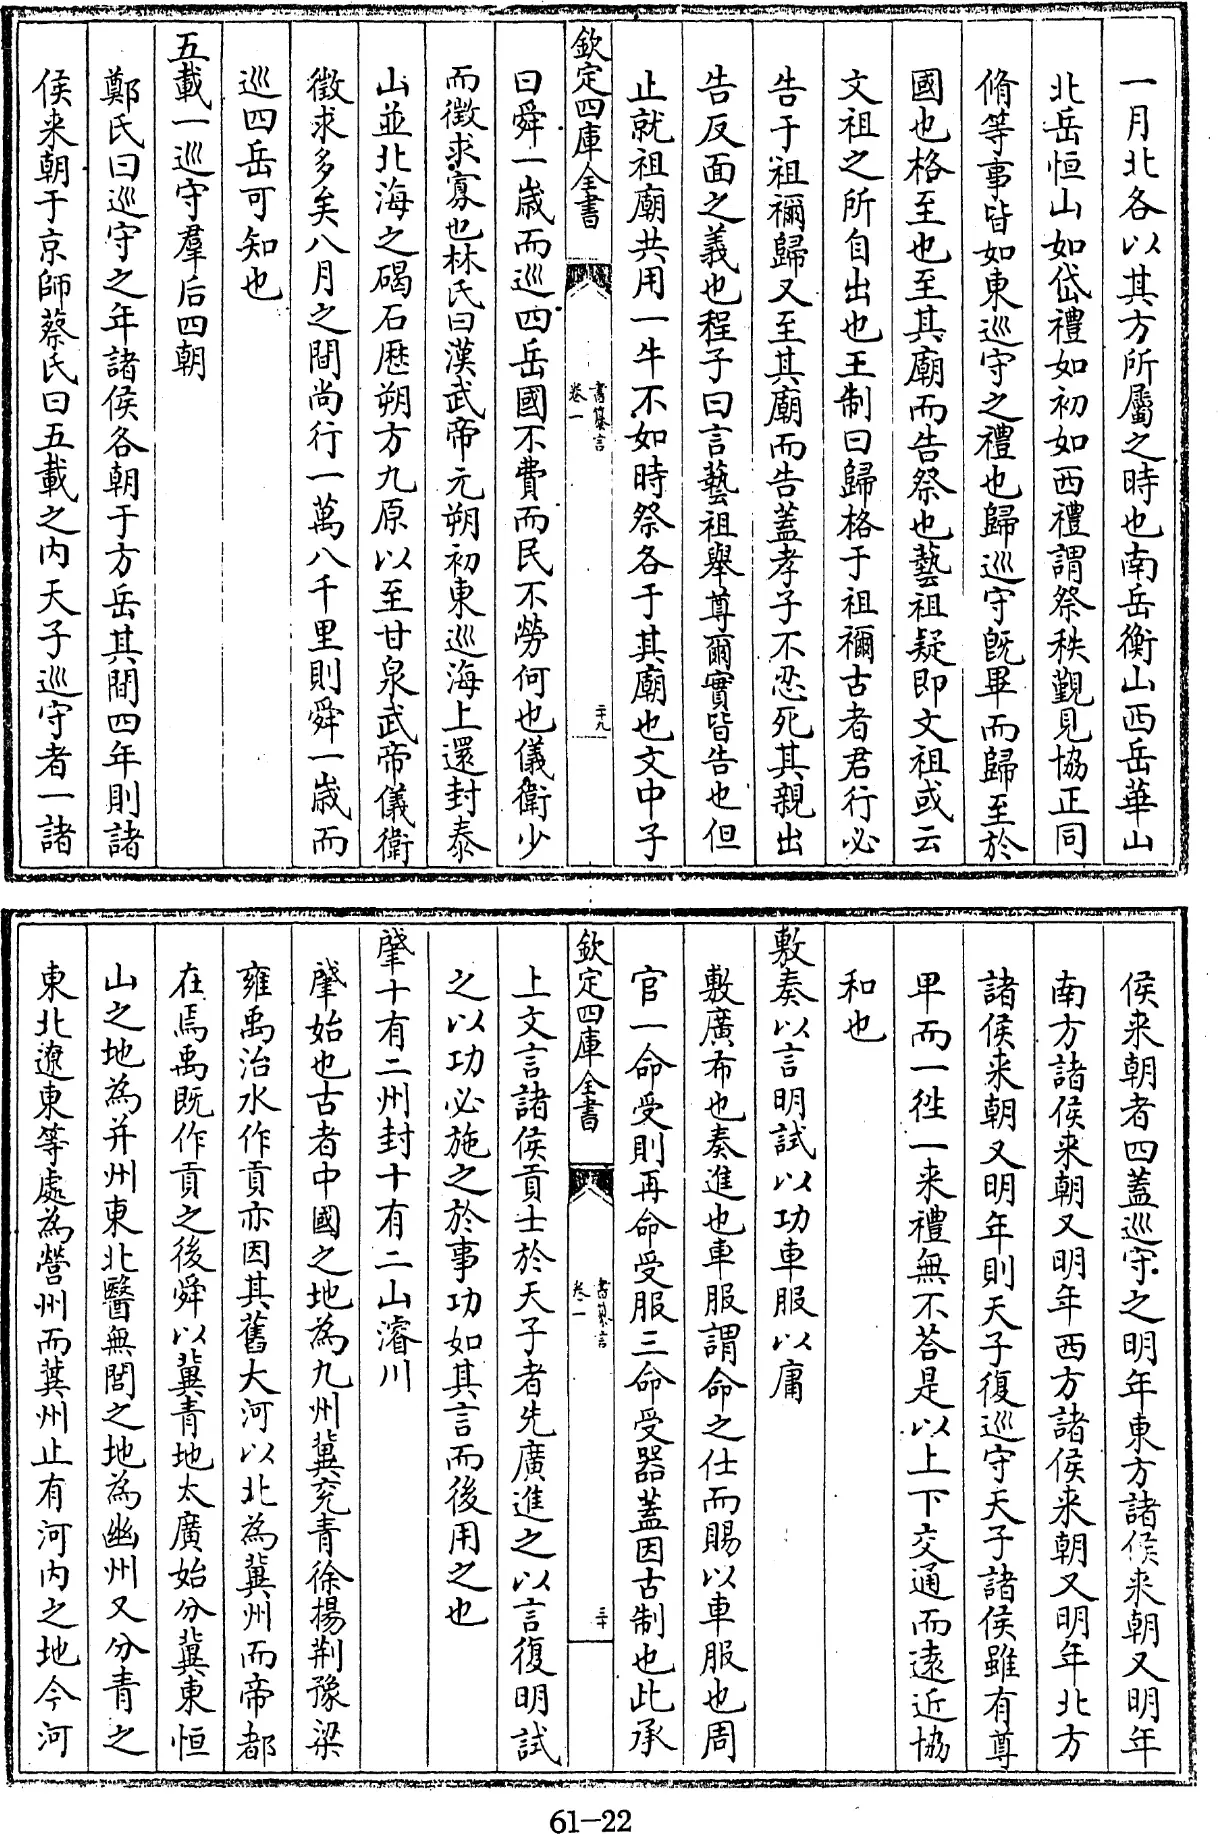 一月北各以其方所屬之時也南岳衡山西岳華山
北岳恒山如岱禮如初如西禮謂祭秩覲見協正同
脩等事皆如東巡守之禮也歸巡守既畢而歸至於
國也格至也至其廟而告祭也藝祖疑即文祖或云
文祖之所自出也王制曰歸格于祖禰古者君行必
告于祖禰歸又至其廟而告蓋孝子不忍死其親出
告反面之義也程子曰言藝祖舉尊爾實皆告也但
止就祖廟共用一牛不如時祭各于其廟也文中子
欽定四庫全書
書纂言
卷一
二十九
曰舜一歲而巡四岳國不費而民不勞何也儀衛少
而徵求寡也林氏曰漢武帝元朔初東巡海上還封泰
山並北海之碣石歷朔方九原以至甘泉武帝儀衛
徵求多矣八月之間尚行一萬八千里則舜一歲而
巡四岳可知也
五載一巡守羣后四朝
鄭氏曰巡守之年諸侯各朝于方岳其間四年則諸
侯来朝于京師蔡氏曰五載之内天子巡守者一諸
侯来朝者四蓋巡守之明年東方諸侯来朝又明年
南方諸侯来朝又明年西方諸侯来朝又明年北方
諸侯来朝又明年則天子復巡守天子諸侯雖有尊
卑而一徃一来禮無不答是以上下交通而遠近協
和也
敷奏以言明試以功車服以庸
敷廣布也奏進也車服謂命之仕而賜以車服也周
官一命受則再命受服三命受器蓋因古制也此承
欽定四庫全書
書纂言
卷一
三十
上文言諸侯貢士於天子者先廣進之以言復明試
之以功必施之於事功如其言而後用之也
肇十有二州封十有二山濬川
肇始也古者中國之地為九州冀兖青徐揚荆豫梁
雍禹治水作貢亦因其舊大河以北為冀州而帝都
在焉禹既作貢之後舜以冀青地太廣始分冀東恒
山之地為并州東北醫無閭之地為幽州又分青之
東北遼東等處為營州而冀州止有河内之地今河
61-22